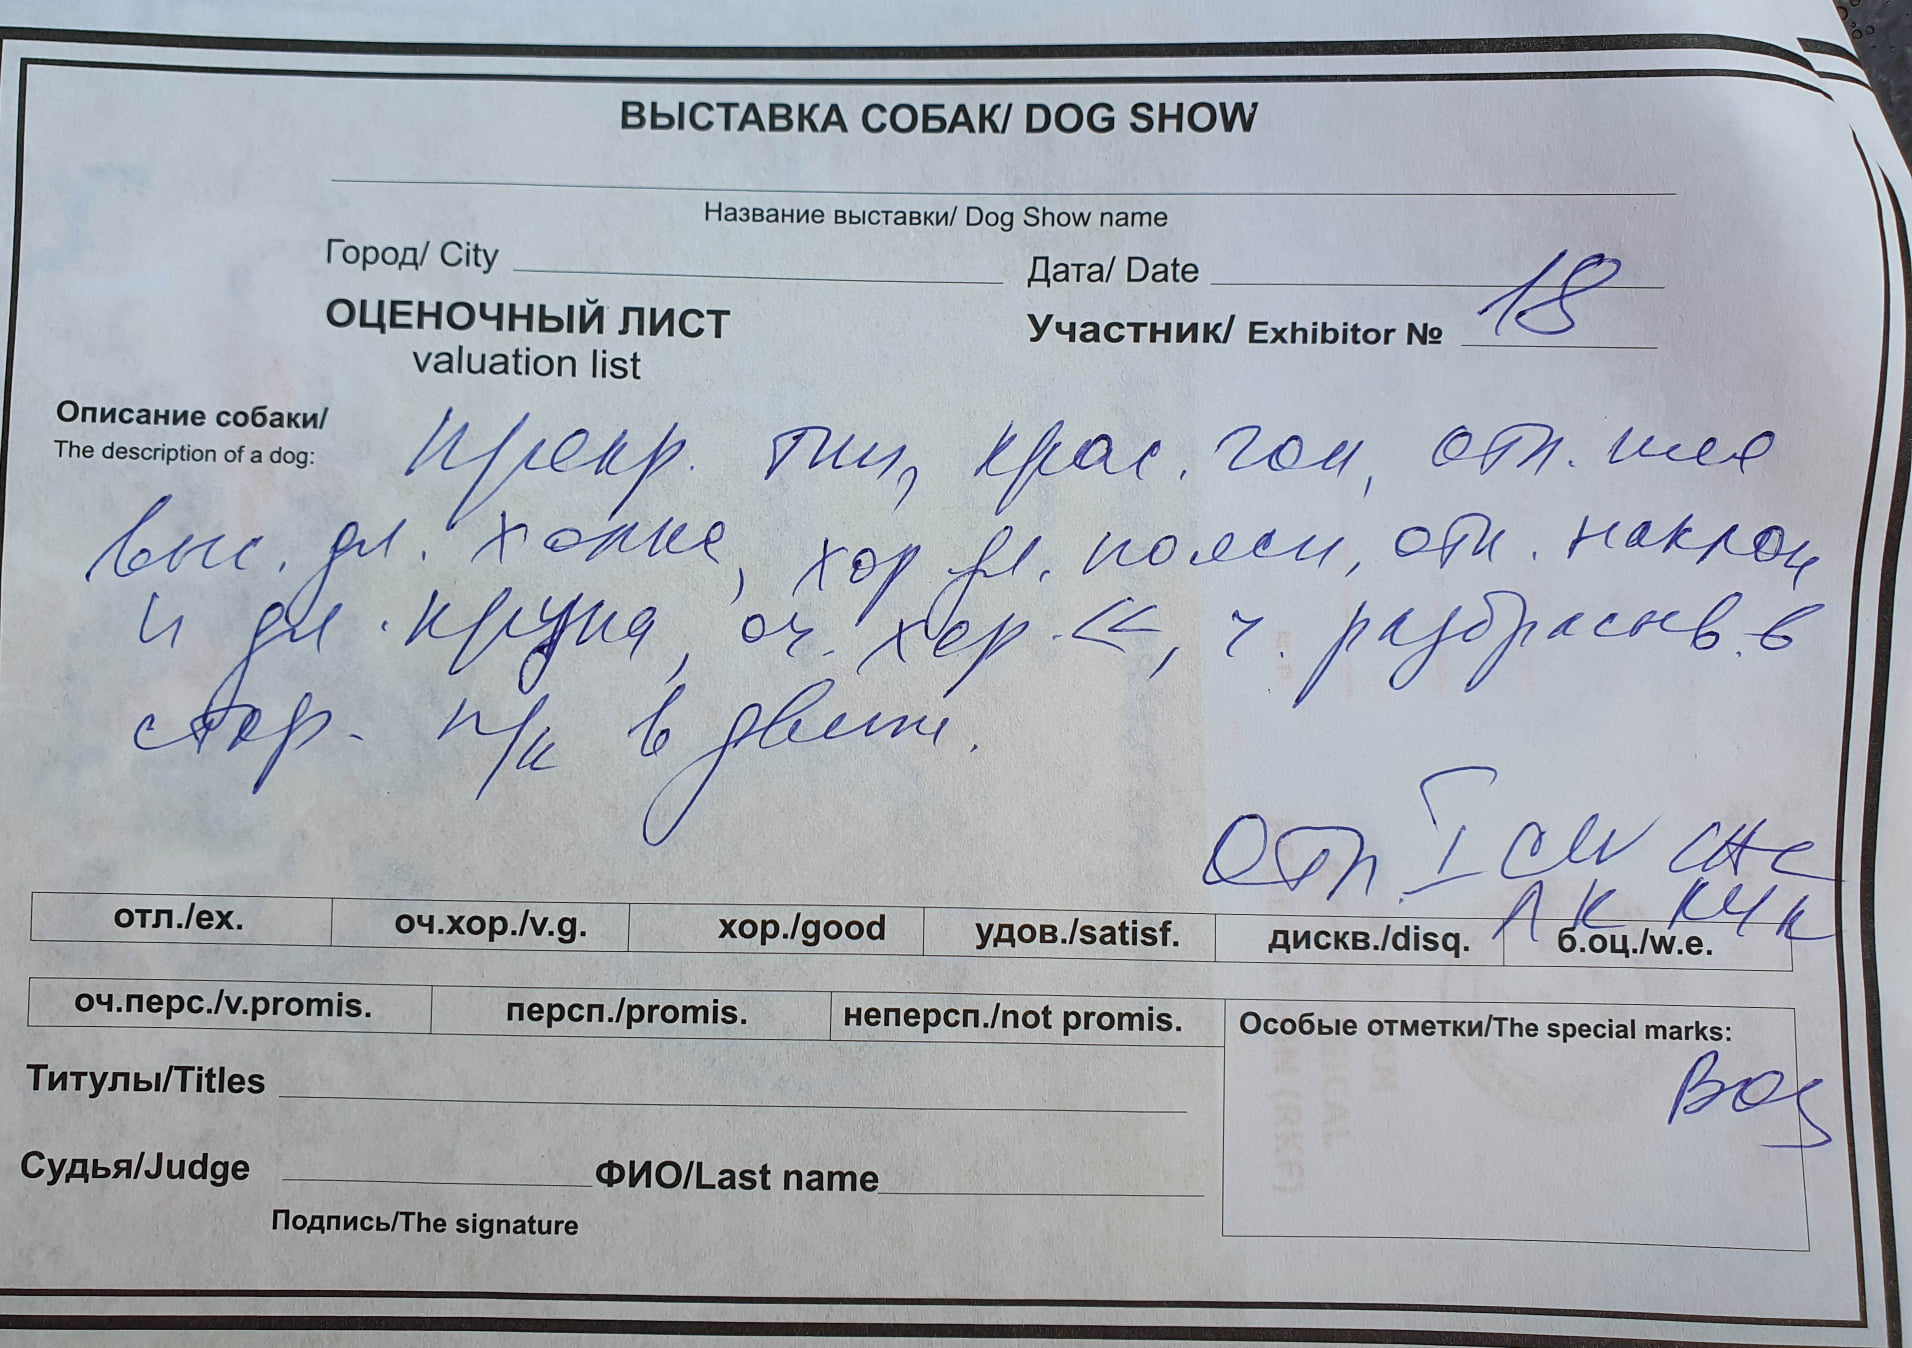 ВЫСТАВКА СОБАК/ DOG SHOW
Название выставки/ Dog Show name
Город/ City Дата/ Date
ОЦЕНОЧНЫЙ ЛИСТ
valuation list
Участник/ Exhibitor № 18
Описание собаки/
The description of a dog:
Прекр. тип, крас. гол, отл. шея
выс. дл. холка, хор дл. поясн, отл. наклон
и дл. крупа, оч. хор. <<, ч. разбрасыв. в
стор. п/к в движ.
отл. I CW CAC
ЛК КЧК
отл./ex. оч.хор./v.g. хор./good удов./satisf. дискв./disq. б.оц./w.e.
оч.перс./v.promis. персп./promis. неперсп./not promis.
Особые отметки/The special marks:
BOS
Титулы/Titles
Судья/Judge ФИО/Last name
Подпись/The signature